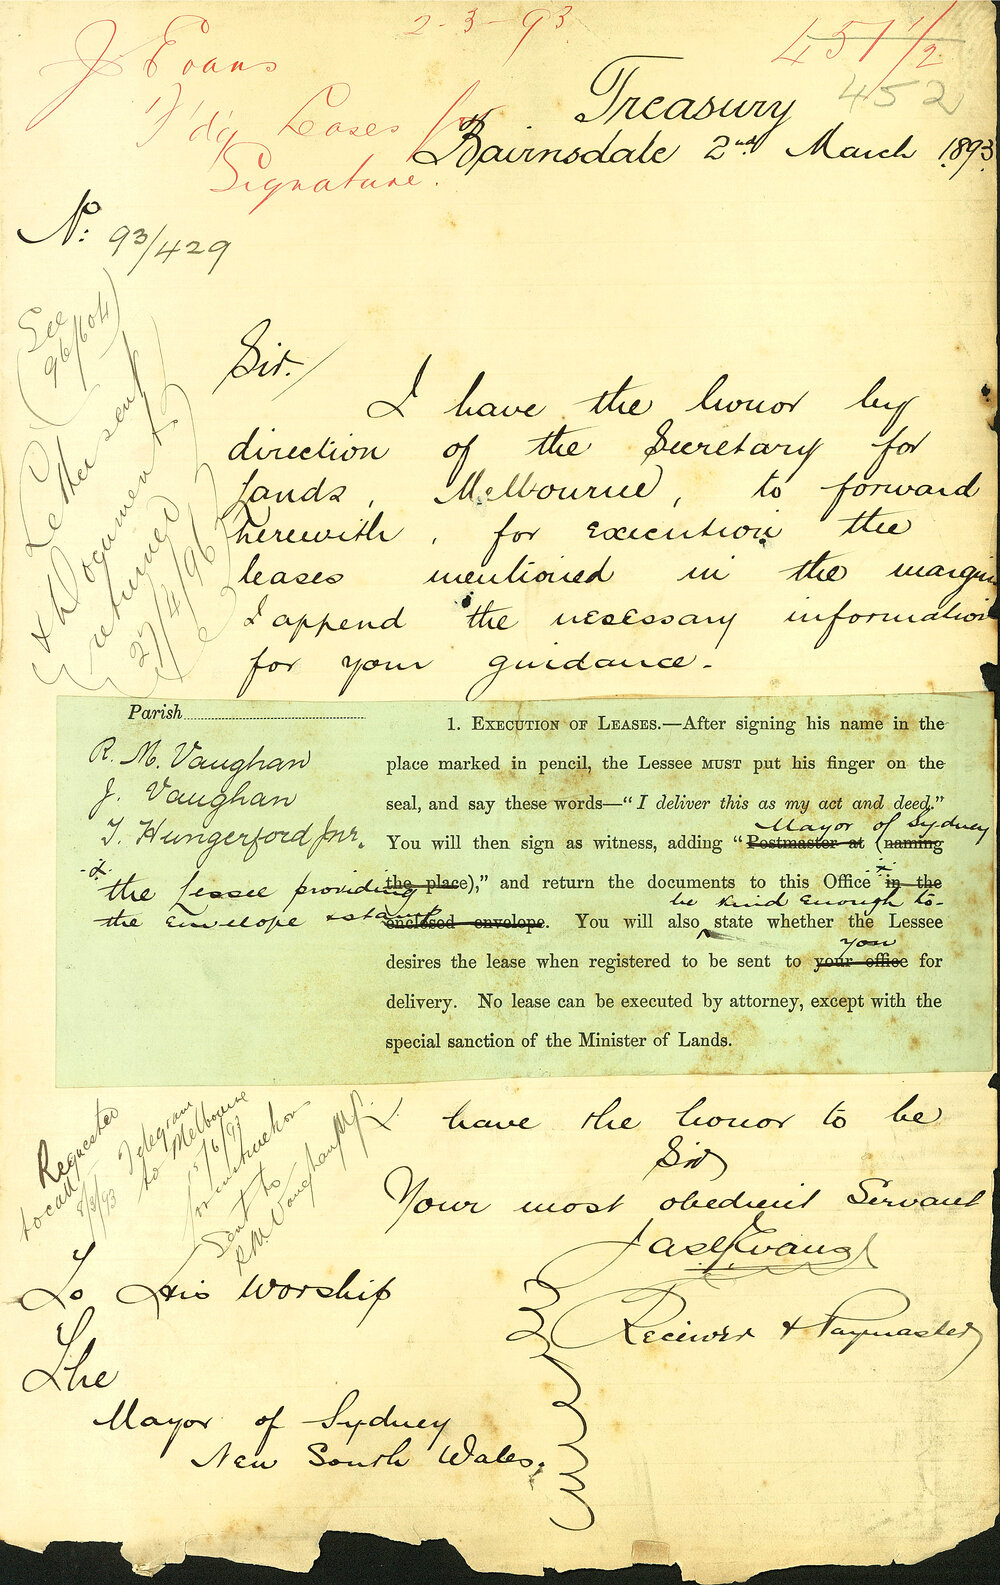 2-3-93
J Evans
F'd'g Leases for
Signature.
451 1/2
452
Treasury
Bairnsdale 2nd March 1893
No: 93/429
(See
96/604)
Letter sent
& Documents
returned
27/4/96
Sir./
I have the honor by
direction of the Secretary for
Lands, Melbourne, to forward
herewith, for execution the
leases mentioned in the margin
I append the necessary information
for your guidance.
Parish
R. M. Vaughan
J. Vaughan
T. Hungerford Jnr.
x
the Lessee providing
the envelope & stamp
1. EXECUTION OF LEASES.—After signing his name in the
place marked in pencil, the Lessee MUST put his finger on the
seal, and say these words—"I deliver this as my act and deed."
Mayor of Sydney
You will then sign as witness, adding "Postmaster at (naming
the place)," and return the documents to this Office x in the
be kind enough to
enclosed envelope. You will also state whether the Lessee
you
desires the lease when registered to be sent to your office for
delivery. No lease can be executed by attorney, except with the
special sanction of the Minister of Lands.
Requested
to call
8/3/93
Telegram
to Melbourne
15/6/93
for instructions
Sent to
R.M. Vaughan
I have the honor to be
Sir
Your most obedient Servant
Jas Evans
Receiver & Paymaster
To His Worship
The
Mayor of Sydney
New South Wales.